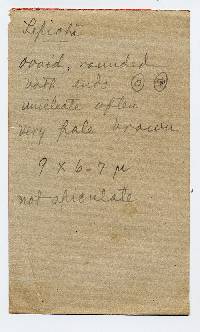 Lepiota
ovoid, rounded
both ends
uniclate often
very pale brown
9 x 6-7 µ
not apiculate